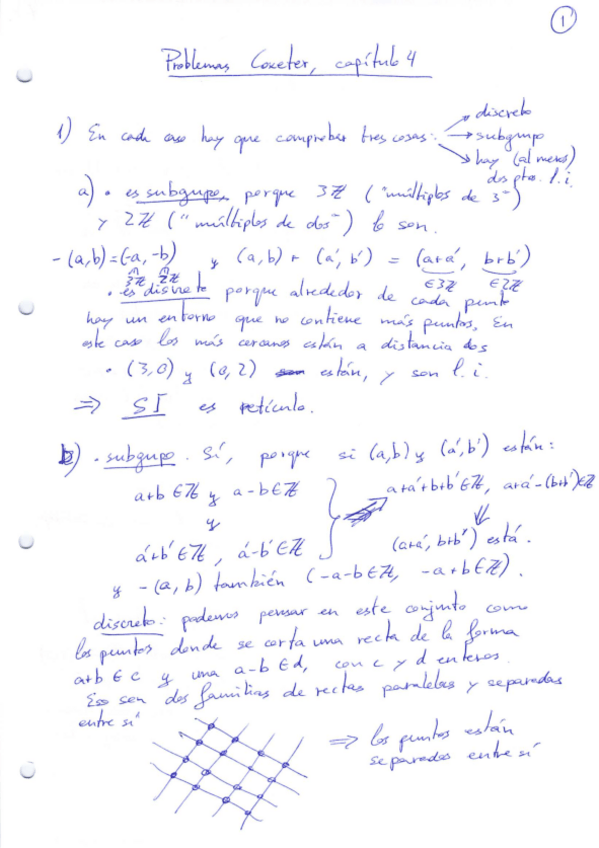 1
Problemas Coxeter, capítulo 4
1) En cada caso hay que comprobar tres cosas:
discreto
subgrupo
hay (al menos) dos ptos. l.i.
a) · es subgrupo, porque 3ℤ ("múltiplos de 3")
y 2ℤ ("múltiplos de dos") lo son.
-(a,b)=(-a,-b) y (a,b) + (a',b') = (a+a', b+b')
3ℤ 2ℤ ∈3ℤ ∈2ℤ
· es discreto porque alrededor de cada punto
hay un entorno que no contiene más puntos. En
este caso los más cercanos están a distancia dos
· (3,0) y (0,2) están, y son l.i.
⇒ SÍ es retículo.
b) · subgrupo. Sí, porque si (a,b) y (a',b') están:
a+b∈ℤ y a-b∈ℤ
y
a'+b'∈ℤ, a'-b'∈ℤ
⇒ a+a'+b+b'∈ℤ, a+a'-(b+b')∈ℤ
⇓
(a+a', b+b') está.
y -(a,b) también (-a-b∈ℤ, -a+b∈ℤ).
discreto: podemos pensar en este conjunto como
los puntos donde se corta una recta de la forma
a+b ∈ c y una a-b ∈ d, con c y d enteros.
Eso son dos familias de rectas paralelas y separadas
entre sí
⇒ los puntos están
separados entre sí